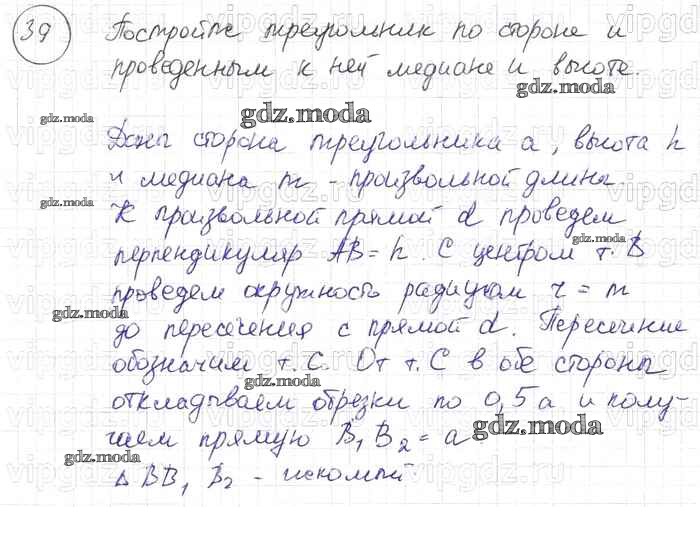 39 Постройте треугольник по стороне и
проведенным к ней медиане и высоте.
Даны сторона треугольника a, высота h
и медиана m - произвольной длины.
К произвольной прямой d проведем
перпендикуляр AB = h. С центром т. B
проведем окружность радиусом r = m
до пересечения с прямой d. Пересечение
обозначим т. C. От т. C в обе стороны
откладываем отрезки по 0,5 a и полу-
чаем прямую B₁ B₂ = a
Δ BB₁ B₂ - искомый.
gdz.moda
gdz.moda
gdz.moda
gdz.moda
gdz.moda
gdz.moda
gdz.moda
gdz.moda
gdz.moda
gdz.moda
gdz.moda